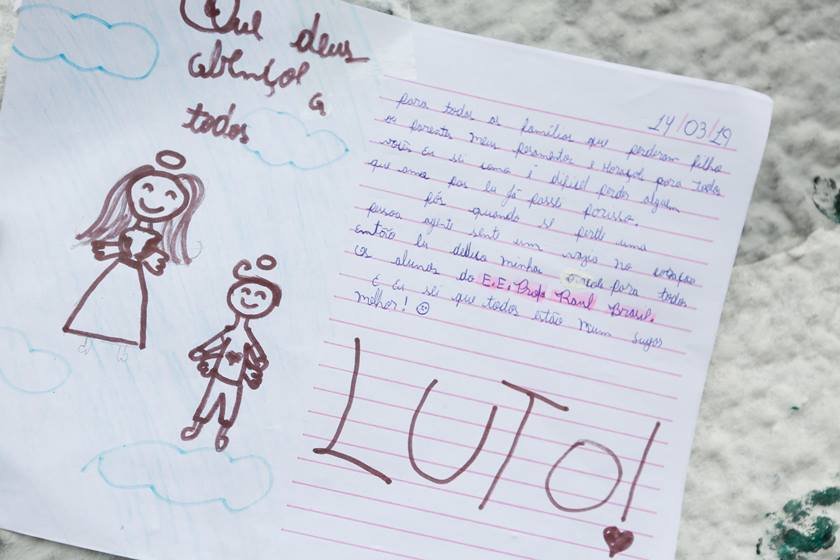 Que deus
abençoe a
todos
14/03/19
para todos as famílias que perderam filho
os parentes meus pesamentos e Horaçol para todos
voıês Eu sei como é dificil perder alguem
que ama pos Eu já passei porisso.
pós quando se perde uma
pessoa agente sente um vazio no coração
então Eu deixo minha para todos
os alunos do E.E. Profo Raul Brasil.
E Eu sei que todos estão num lugar
melhor!
LUTO!